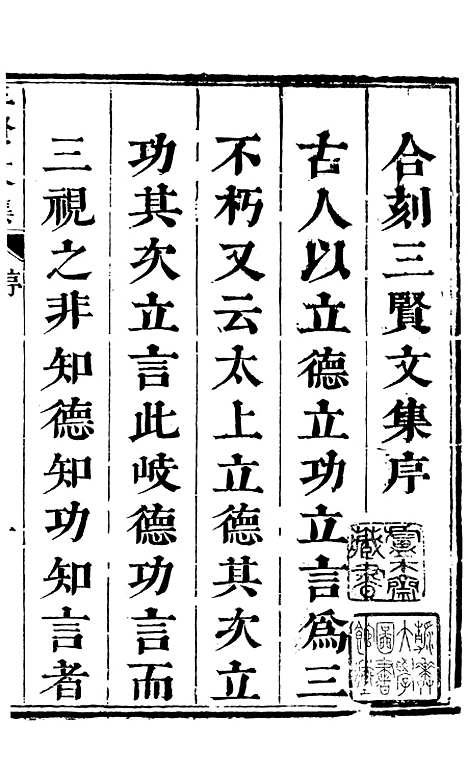 合刻三賢文集序
古人以立德立功立言爲三
不朽又云太上立德其次立
功其次立言此岐德功言而
三視之非知德知功知言者
序
藏書
大學
圖書